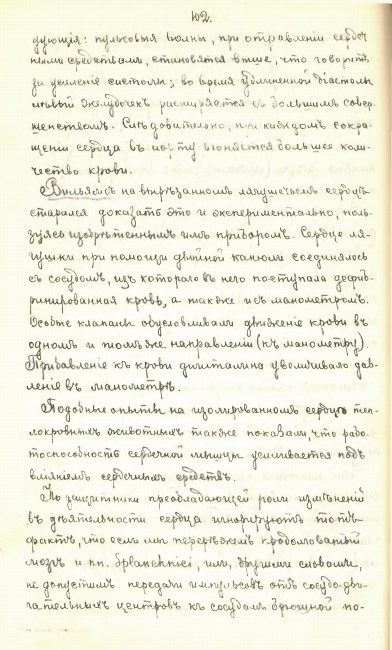 102.
дующія: пульсовыя волны, при отравленіи сердеч-
ными средствами, становятся выше, что говоритъ
за усиленіе систолы; во время удлиненной діастолы
лѣвый желудочекъ расширяется съ большимъ совер-
шенствомъ. Слѣдовательно, при каждомъ сокра-
щеніи сердца въ аорту вгоняется большее коли-
чество крови.
Вильямсъ на вырѣзанномъ лягушечьемъ сердцѣ
старался доказать это и экспериментально, поль-
зуясь изобрѣтеннымъ имъ приборомъ. Сердце ля-
гушки при помощи двойной канюли соединялось
съ сосудомъ, изъ котораго въ него поступала дефиб-
ринированная кровь, а также и съ манометромъ.
Особые клапаны обусловливали движеніе крови въ
одномъ и томъ же направленіи (къ манометру).
Прибавленіе къ крови дигиталина увеличивало дав-
леніе въ манометрѣ.
Подобные опыты на изолированномъ сердцѣ теп-
локровныхъ животныхъ также показали, что рабо-
тоспособность сердечной мышцы усиливается подъ
вліяніемъ сердечныхъ средствъ.
Но защитники преобладающей роли измѣненій
въ дѣятельности сердца игнорируютъ тотъ
фактъ, что если мы перерѣжемъ продолговатый
мозгъ и nn. splanchnici, или, другими словами,
не допустимъ передачи импульсовъ отъ сосудо-дви-
гательныхъ центровъ къ сосудамъ брюшной по-